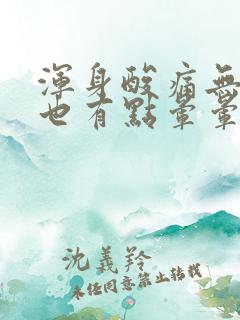 渾身酸痛無
也有點暈暈
沈義羚
未經同意禁止轉載